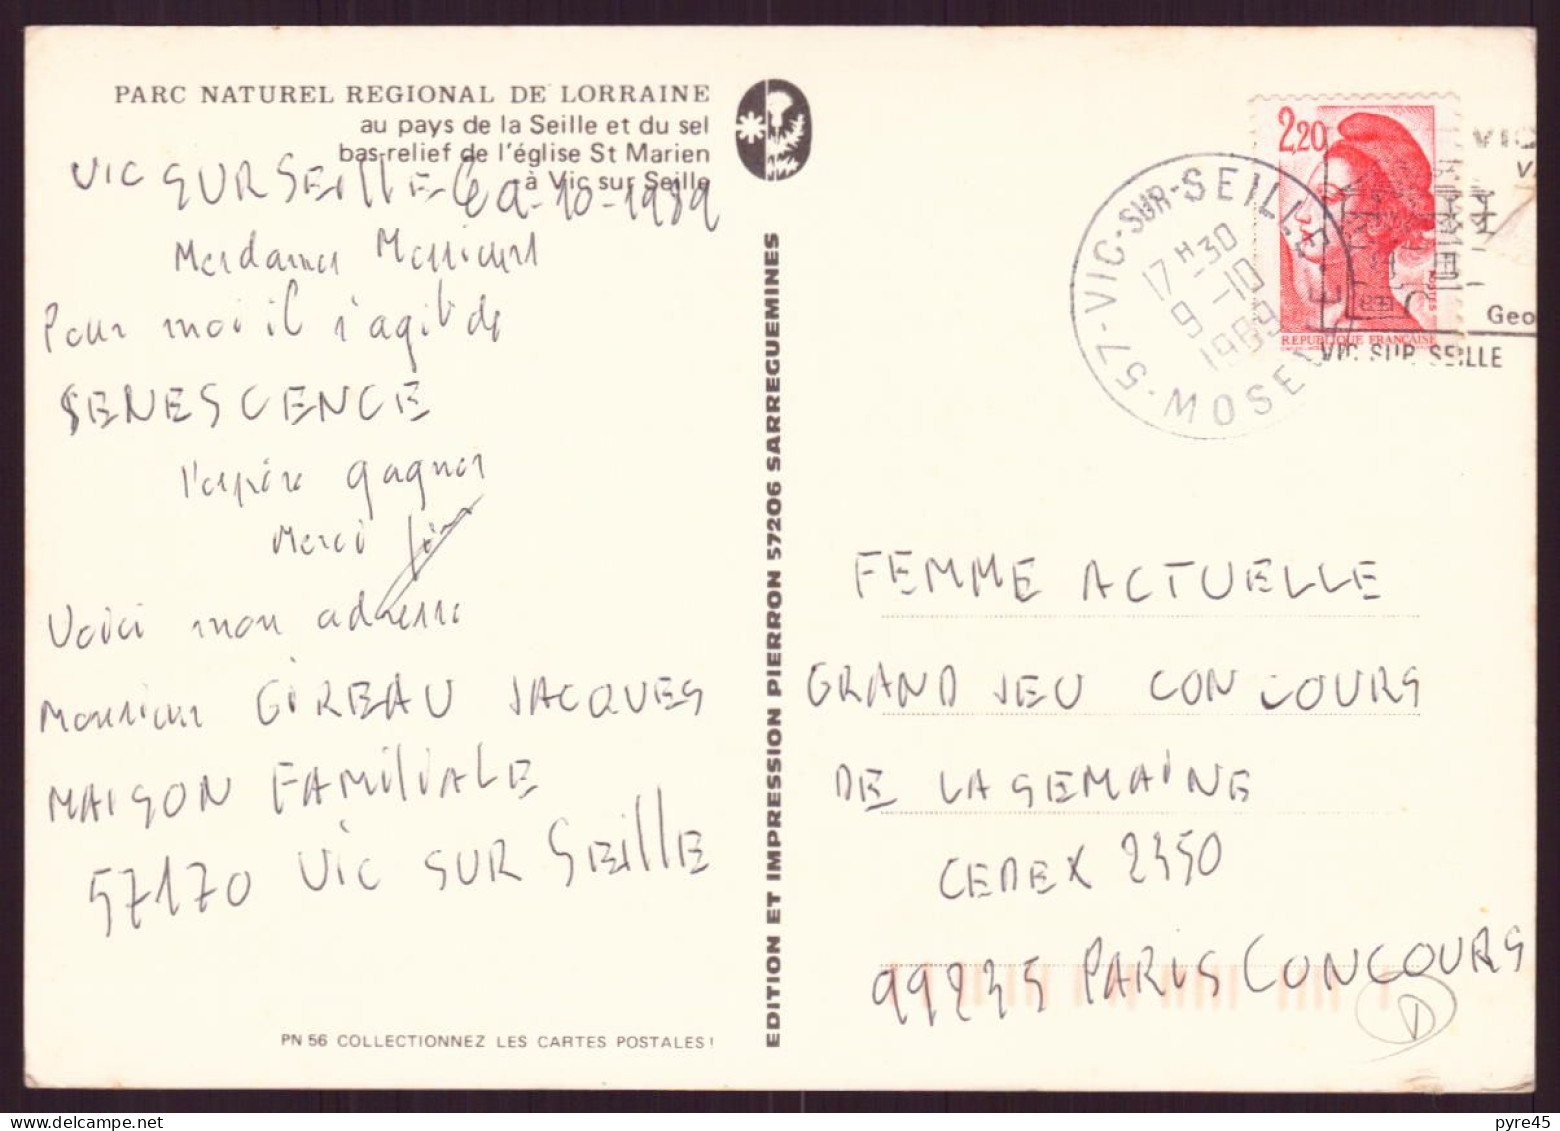 PARC NATUREL REGIONAL DE LORRAINE
au pays de la Seille et du sel
bas-relief de l'église St Marien
à Vic sur Seille
VIC SUR SEILLE le 9-10-1989
Mesdames Messieurs
Pour moi il s'agit de
SENESCENCE
J'espère gagner
Merci
Voici mon adresse
Monsieur GIREAU JACQUES
MAISON FAMILIALE
57170 VIC SUR SEILLE
PN 56 COLLECTIONNEZ LES CARTES POSTALES!
EDITION ET IMPRESSION PIERRON 57206 SARREGUEMINES
2,20
POSTES
REPUBLIQUE FRANÇAISE
57-VIC-SUR-SEILLE-MOSELLE
17H-30
9-10
1989
VIC
Geo
VIC SUR SEILLE
FEMME ACTUELLE
GRAND JEU CONCOURS
DE LA SEMAINE
CEDEX 2450
99245 PARIS CONCOURS
D
pyre45